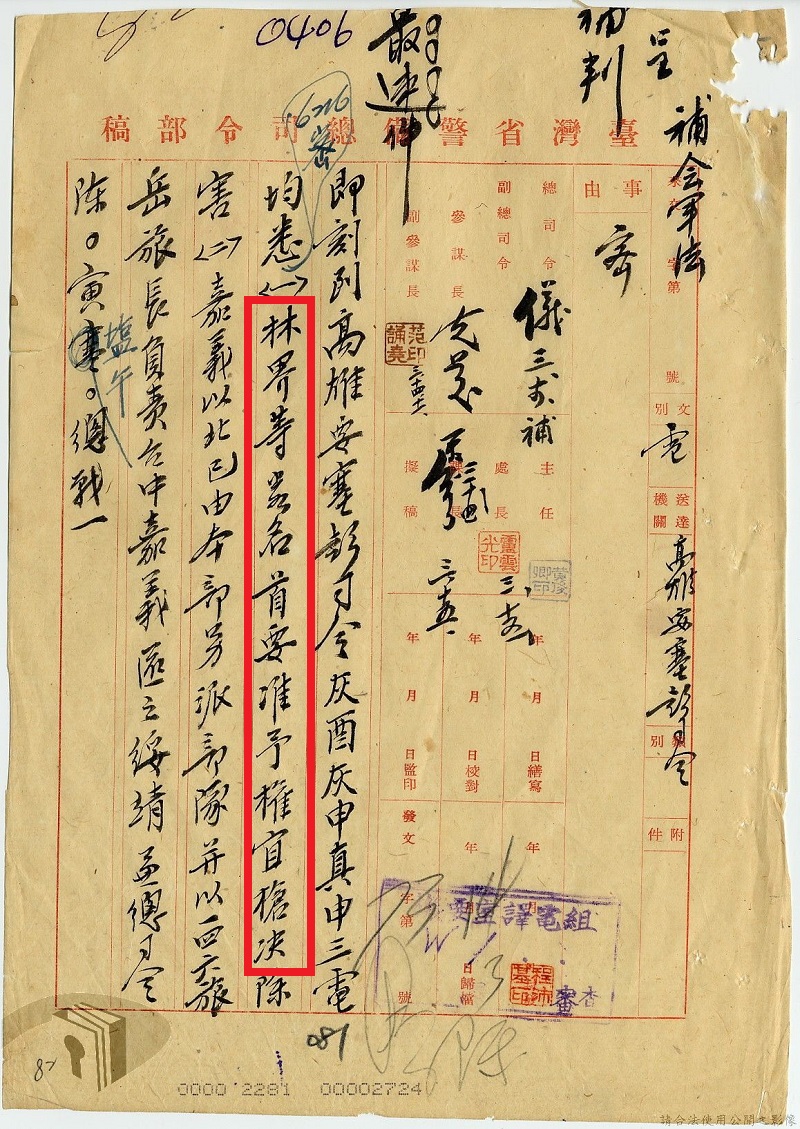 0406
最速件
補判
呈
補會軍法
6226
臺灣省警備總司令部稿
事由
密
文別
電
送達機關
高雄要塞彭司令
類別
附件
總司令
副總司令
參謀長
副參謀長
儀
補
范誦堯印
主任
處長
課長
擬稿
盧雲光印
年 月 日繕寫
年 月 日校對
年 月 日監印
年 月 日歸檔
發文 字第 號
譯電組
審查
即刻到高雄要塞彭司令灰酉灰申真申三電
均悉㈠林界等叁名首要准予權宜槍决除
害㈡嘉義以北已由本部另派部隊并以四六旅
岳旅長負責台中嘉義區之綏靖並總司令
陳○寅塩午○總戰一
081
0000 2281 00002724
請合法使用公開之影像